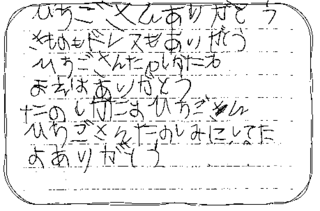 ひちごさんありがとう
きものもドレスもありがとう
ひちごさんたのしかたね
よえはありがとう
たのしかたよひちごさん
ひちごさんたのしみにしてた
よありがとう